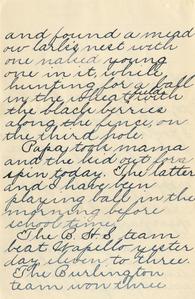 and found a mead
ow lark's nest with
one naked young
one in it, while
hunting for a ball
in the field with
the black berries
along the fence, on
the third hole.
Papa took mama
and the kid out for a
spin today. The latter
and I have been
playing ball in the
morning before
school time.
The B. H. S. team
beat Wapello yester
day eleven to three.
The Burlington
team won three